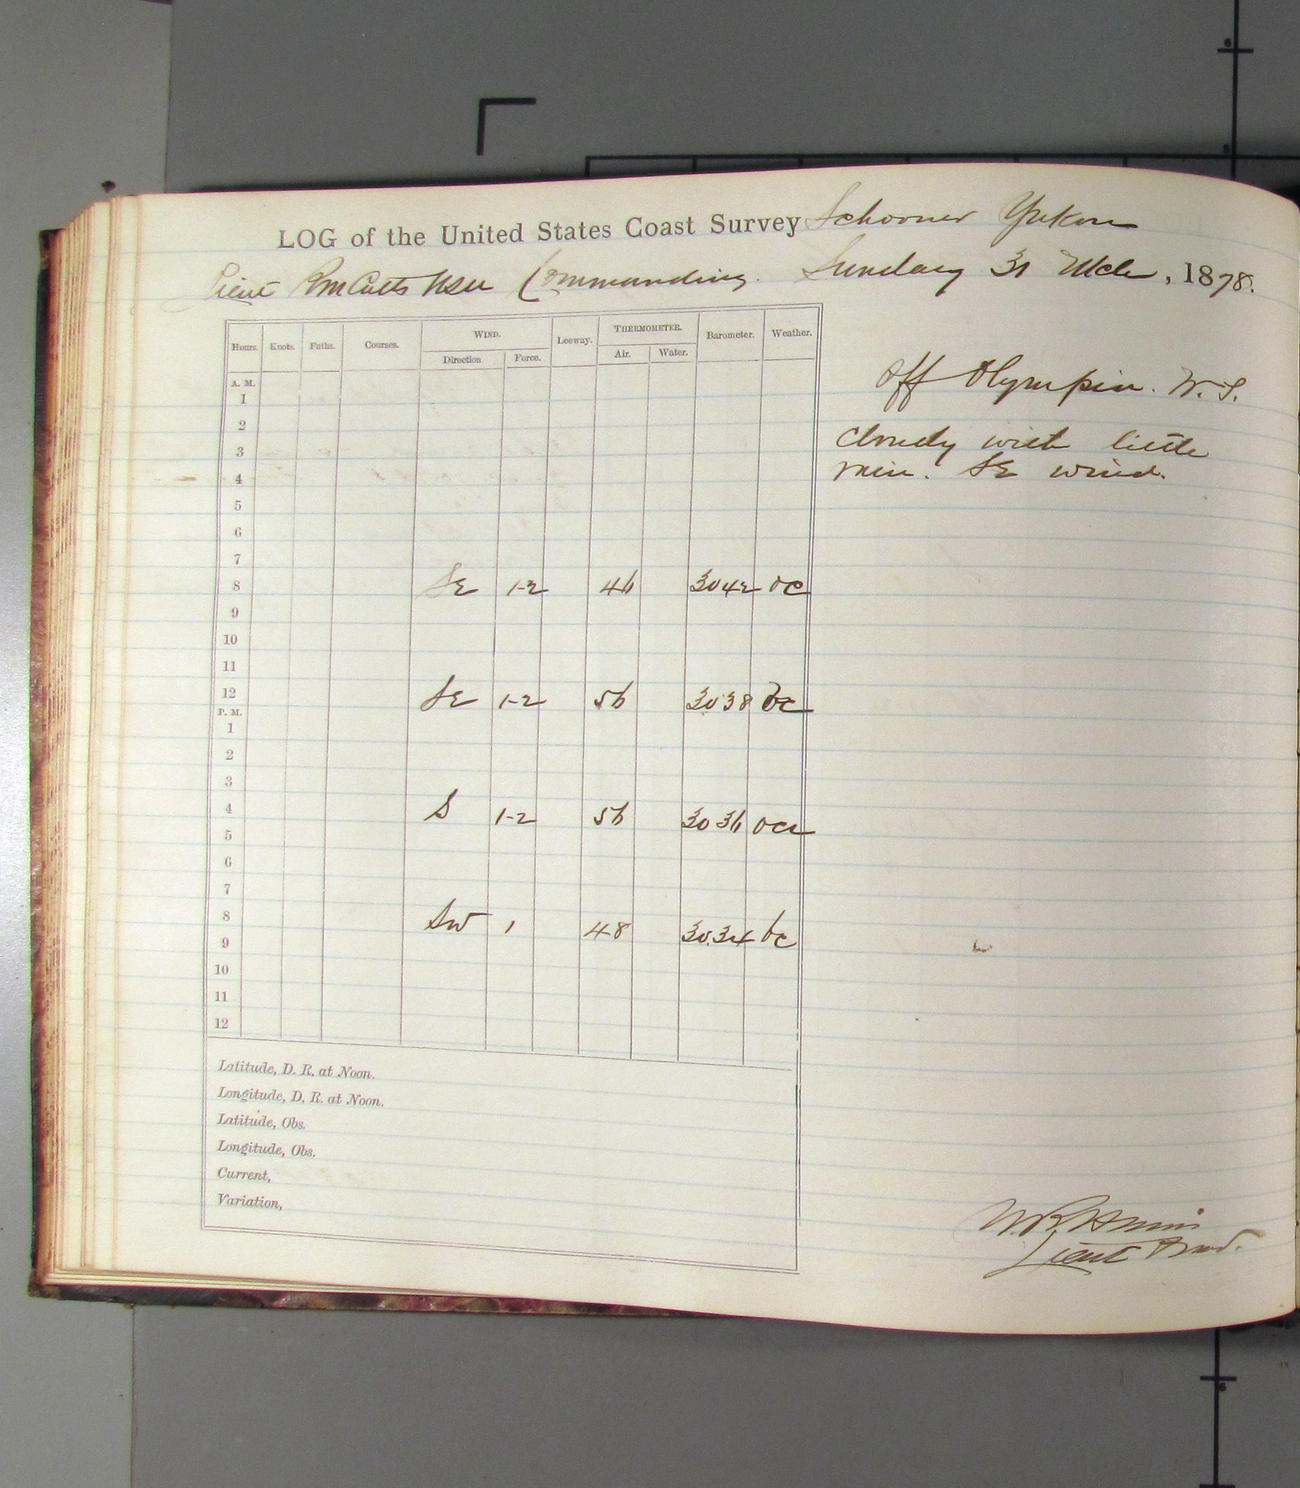 LOG of the United States Coast Survey Schooner Yukon
Lieut RM Cutts USN Commanding. Sunday 31 Mch, 1878.
Hours. Knots. Faths. Courses. WIND. Leeway. THERMOMETER. Barometer. Weather.
Direction Force. Air. Water.
A. M.
1
2
3
4
5
6
7
8 SE 1-2 46 3042 oc
9
10
11
12 SE 1-2 56 3038 bc
P. M.
1
2
3
4 S 1-2 56 3036 ocr
5
6
7
8 SW 1 48 30.34 bc
9
10
11
12
off Olympia. W. T.
Cloudy with little
rain. SE wind.
Latitude, D. R. at Noon.
Longitude, D. R. at Noon.
Latitude, Obs.
Longitude, Obs.
Current,
Variation,
Lieut